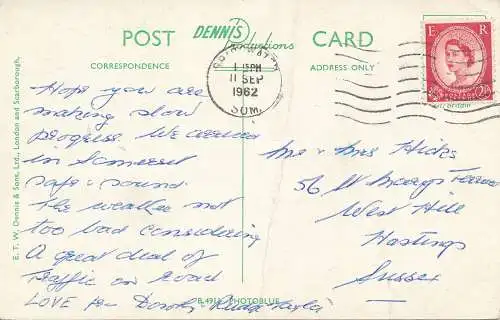 POST DENNIS Productions CARD
CORRESPONDENCE
ADDRESS ONLY
E. T. W. Dennis & Sons, Ltd., London and Scarborough.
1 15PM
11 SEP
1962
SOM
E R
Hope you are
making slow
progress. We arrived
in Somerset
safe & sound.
The weather not
too bad considering
A great deal of
Traffic on Road
LOVE from Dorothy
Mr & Mrs Hicks
56 St Georges Terrace
West Hill
Hastings
Sussex
PHOTOBLUE